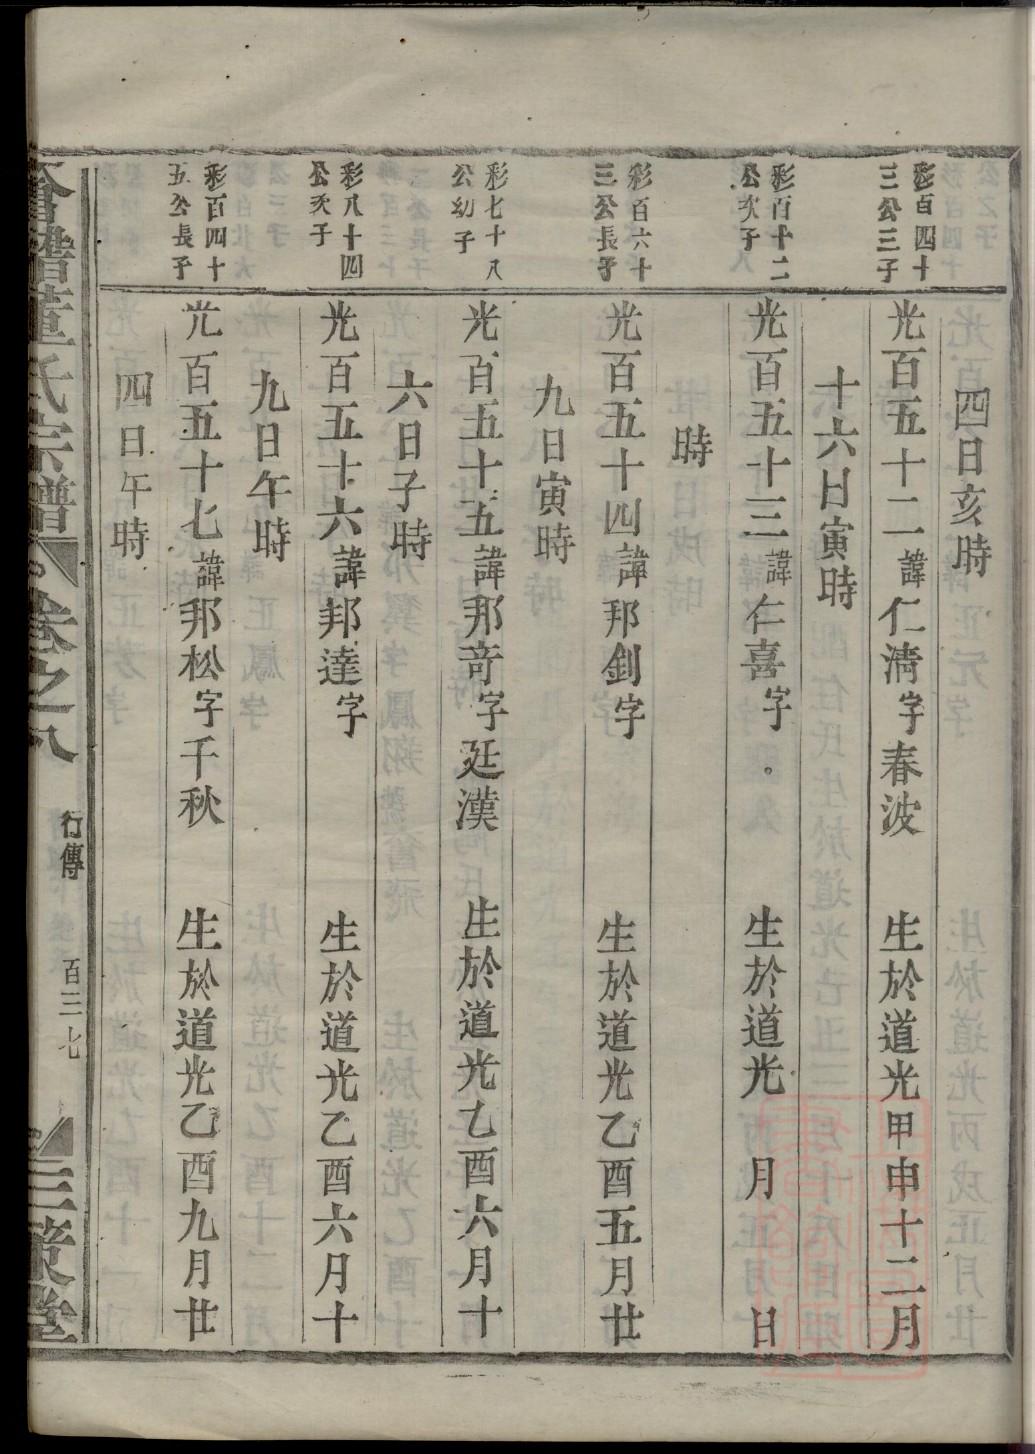 四日亥時
彩百四十
三公三子
光百五十二諱仁清字春波 生於道光甲申十二月
十六日寅時
彩百十二
公次子
光百五十三諱仁喜字 生於道光 月 日
時
彩百六十
三公長子
光百五十四諱邦釗字 生於道光乙酉五月廿
九日寅時
彩七十八
公幼子
光百五十五諱邦竒字廷漢 生於道光乙酉六月十
六日子時
彩八十四
公次子
光百五十六諱邦達字 生於道光乙酉六月十
九日午時
彩百四十
五公長子
光百五十七諱邦松字千秋 生於道光乙酉九月廿
四日午時
董氏宗譜 卷之八 行傳 百三七 三策堂